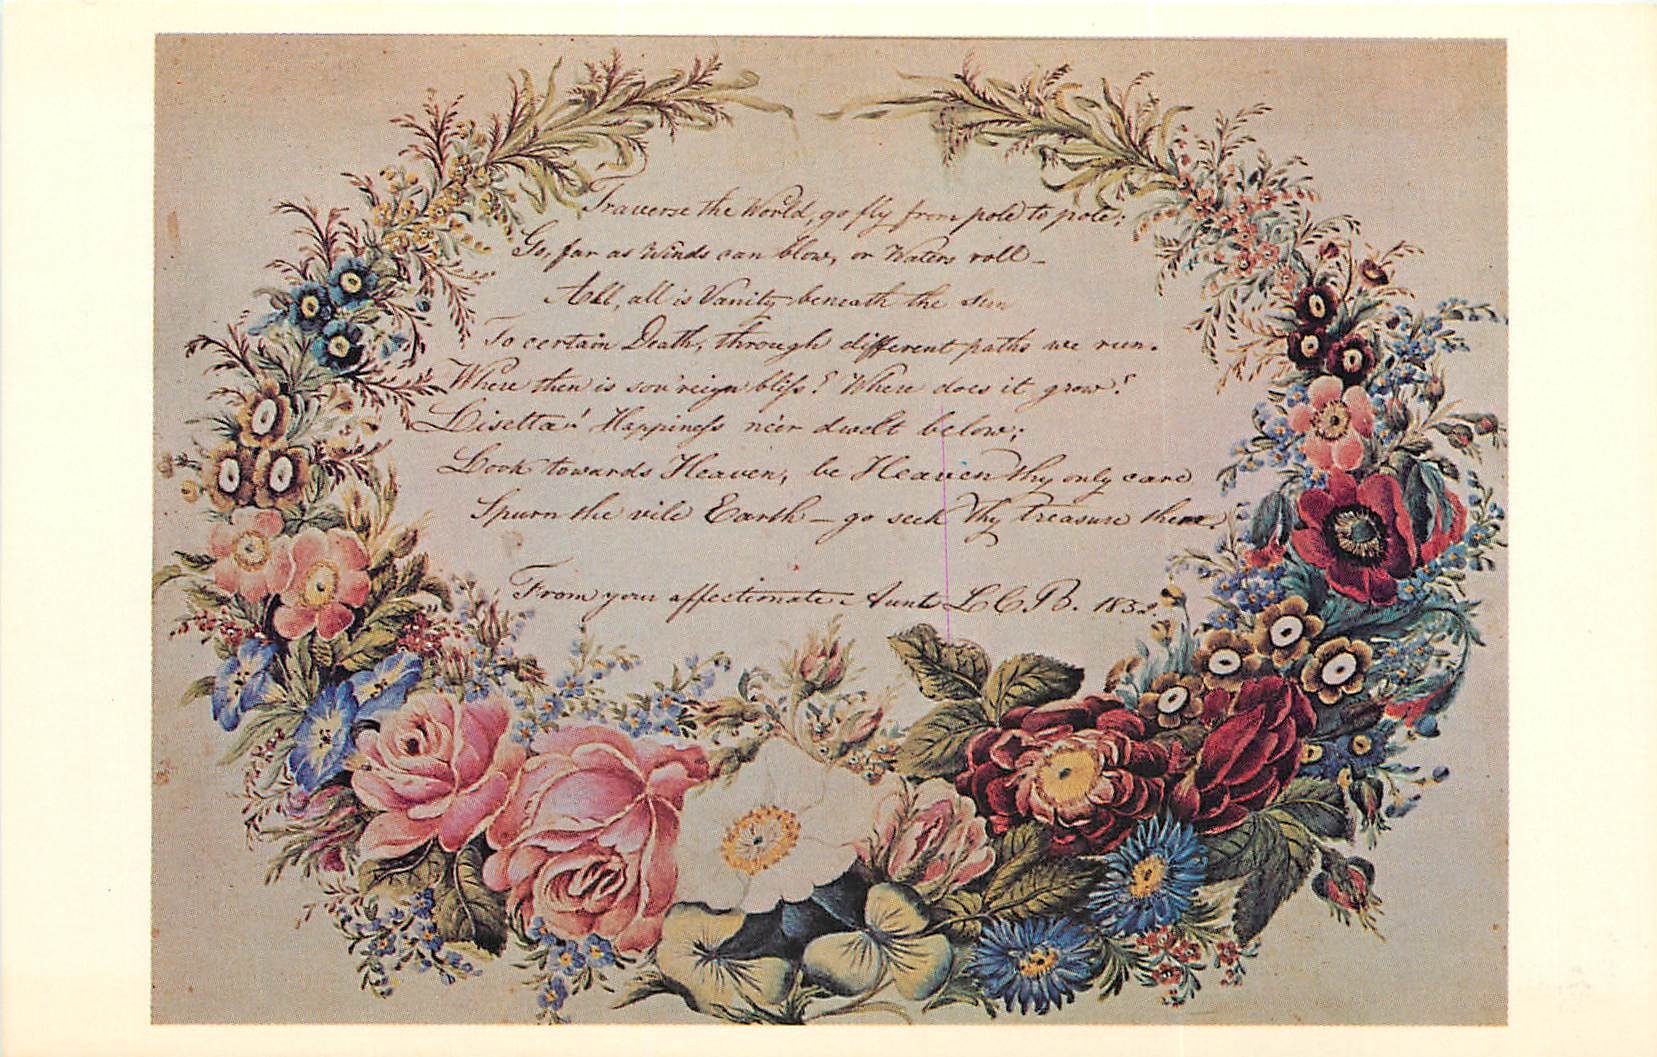 Traverse the World, go fly from pole to pole;
Go, far as Winds can blow, or Waters roll –
All, all is Vanity beneath the Sun
To certain Death, through different paths we run.
Where then is sov'reign bliſs? Where does it grow?
Lisetta! Happineſs ne'er dwelt below;
Look towards Heaven, be Heaven thy only care
Spurn the vile Earth – go seek Thy Treasure there.
From your affectionate Aunt L C B.